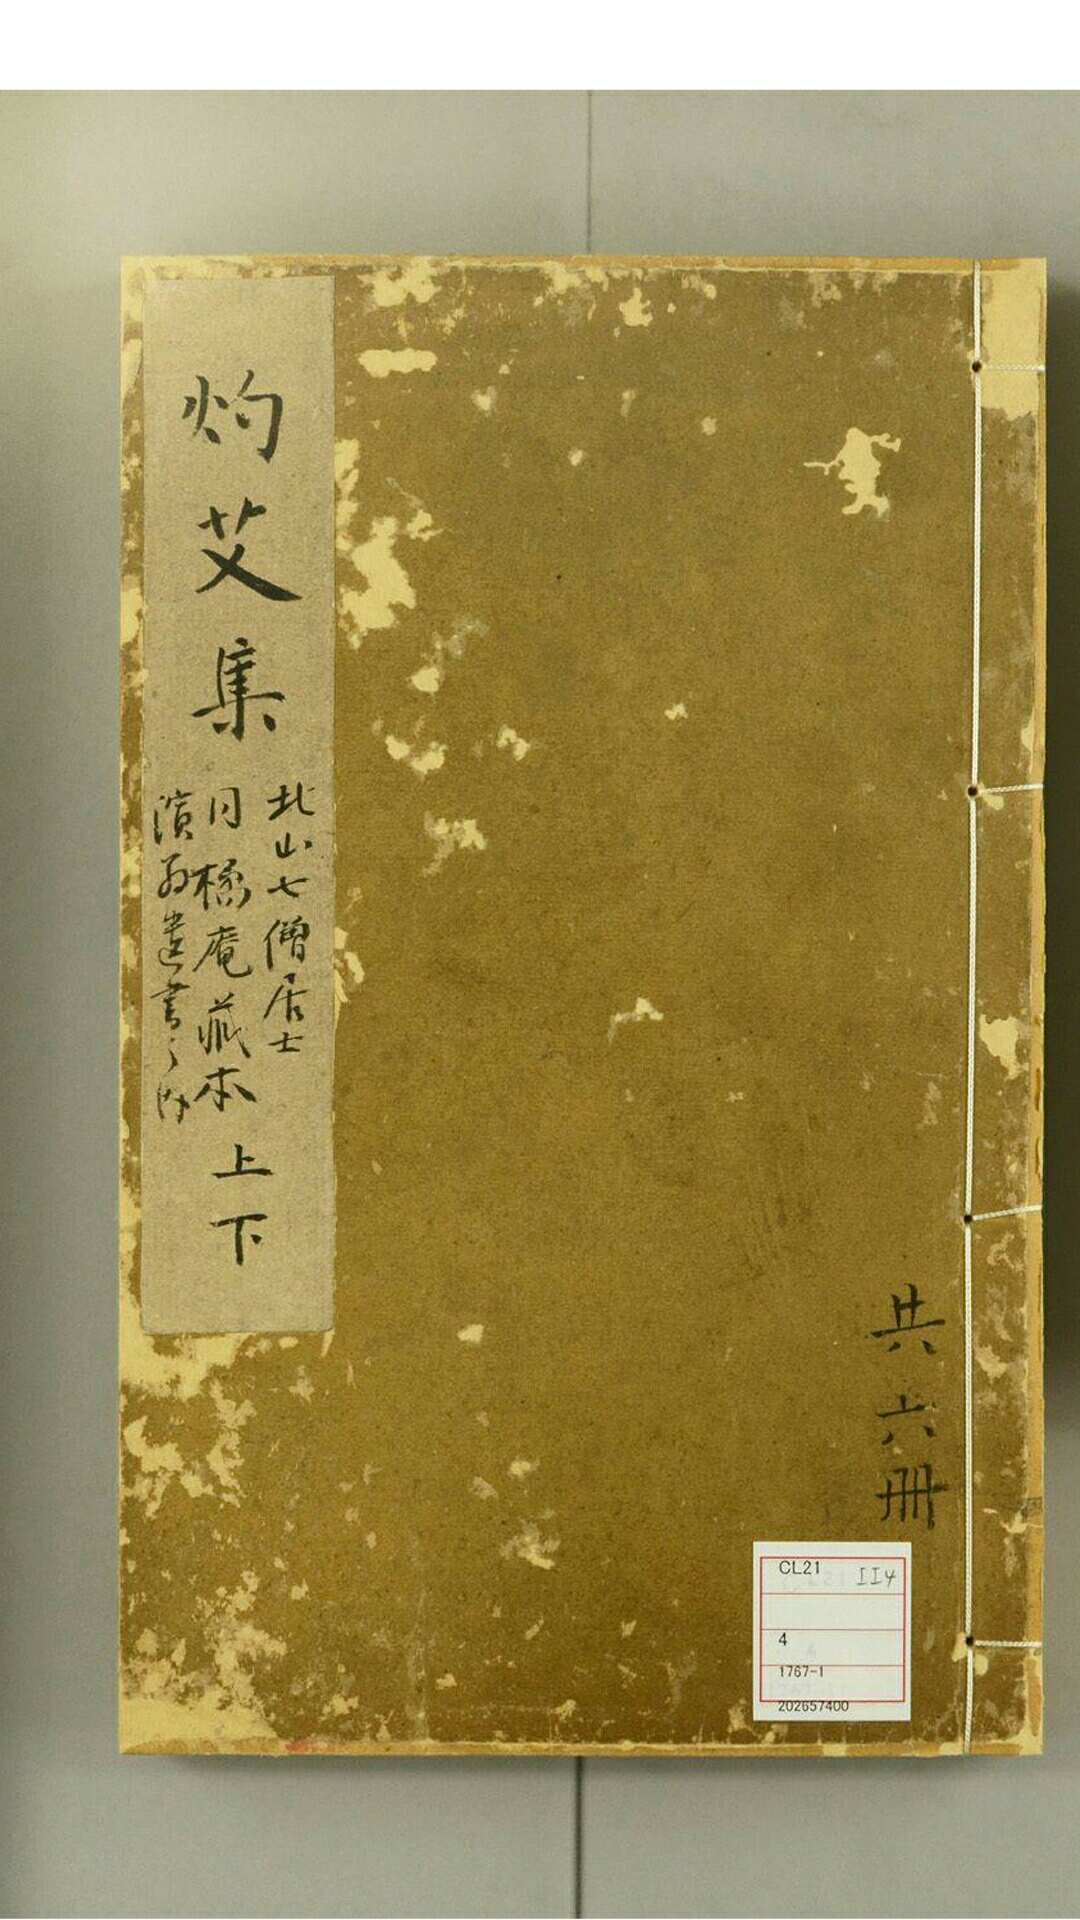 共六冊
灼艾集
北山七僧居士
月橘庵藏本
濱 遺書之内
上下
CL21 II4
4
1767-1
202657400